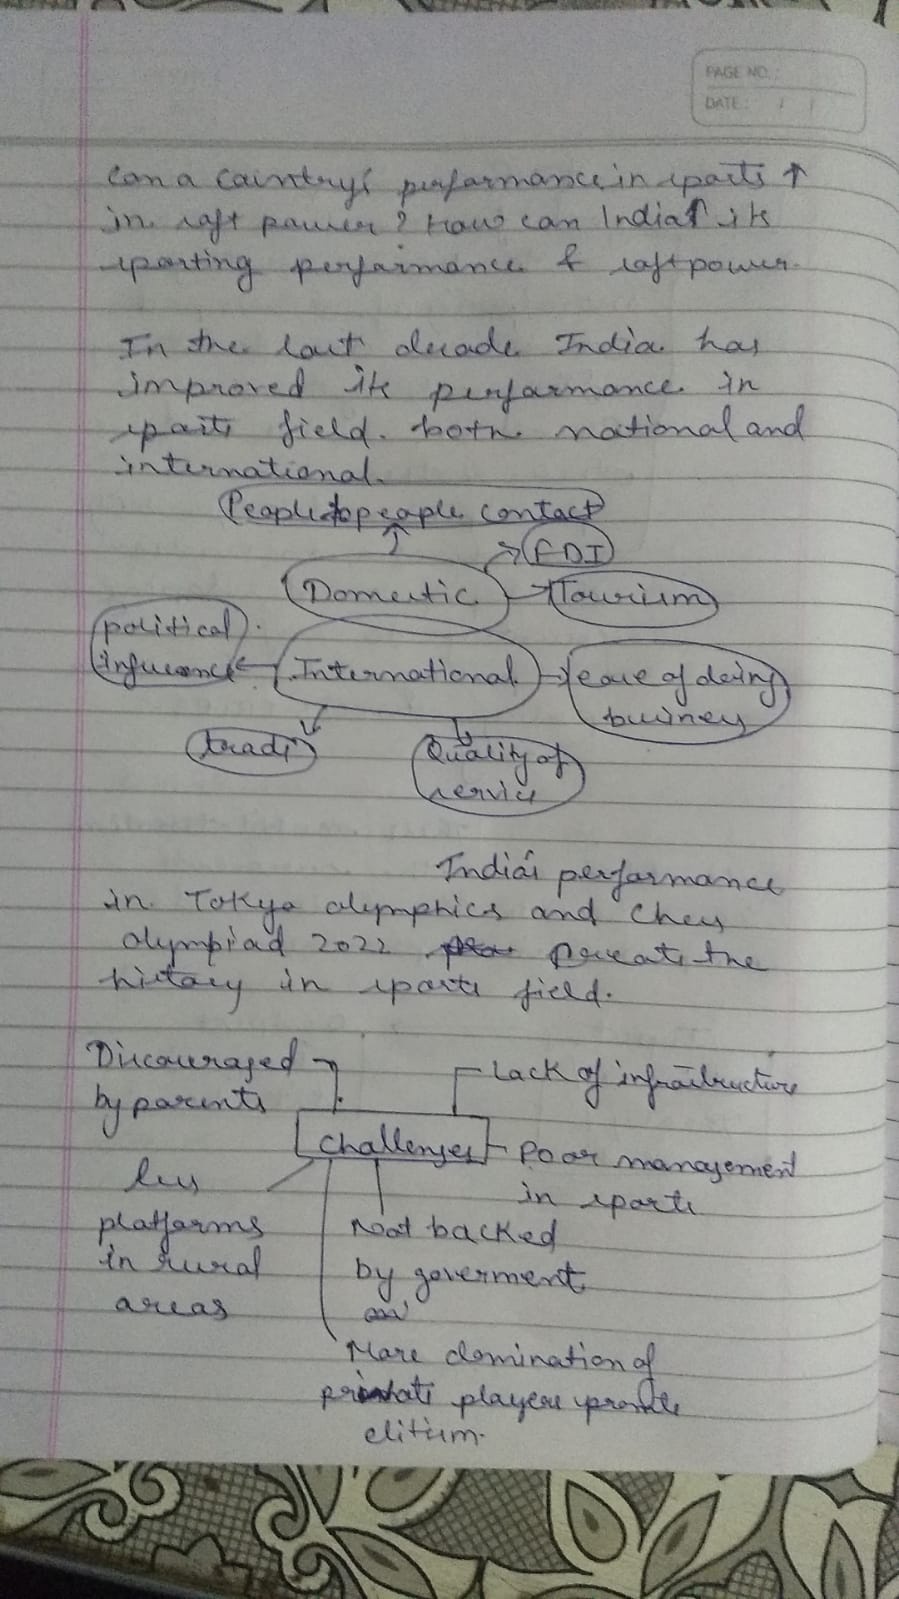 PAGE NO.:
DATE: / /
Can a country's performance in sports ↑
in soft power? How can India ↑ its
sporting performance & soft power.
In the last decade India has
improved its performance in
sports field. both national and
international.
People to people contact
FDI
Domestic
Tourism
political
influence
International
ease of doing
business
trade
Quality of
service
India's performance
in Tokyo olymphics and Chess
olympiad 2022 the
history in sports field.
Discouraged
by parents
Lack of infrastructure
Challenges
Poor management
in sports
less
platforms
in rural
areas
Not backed
by goverment
More domination of
private players
elitism.